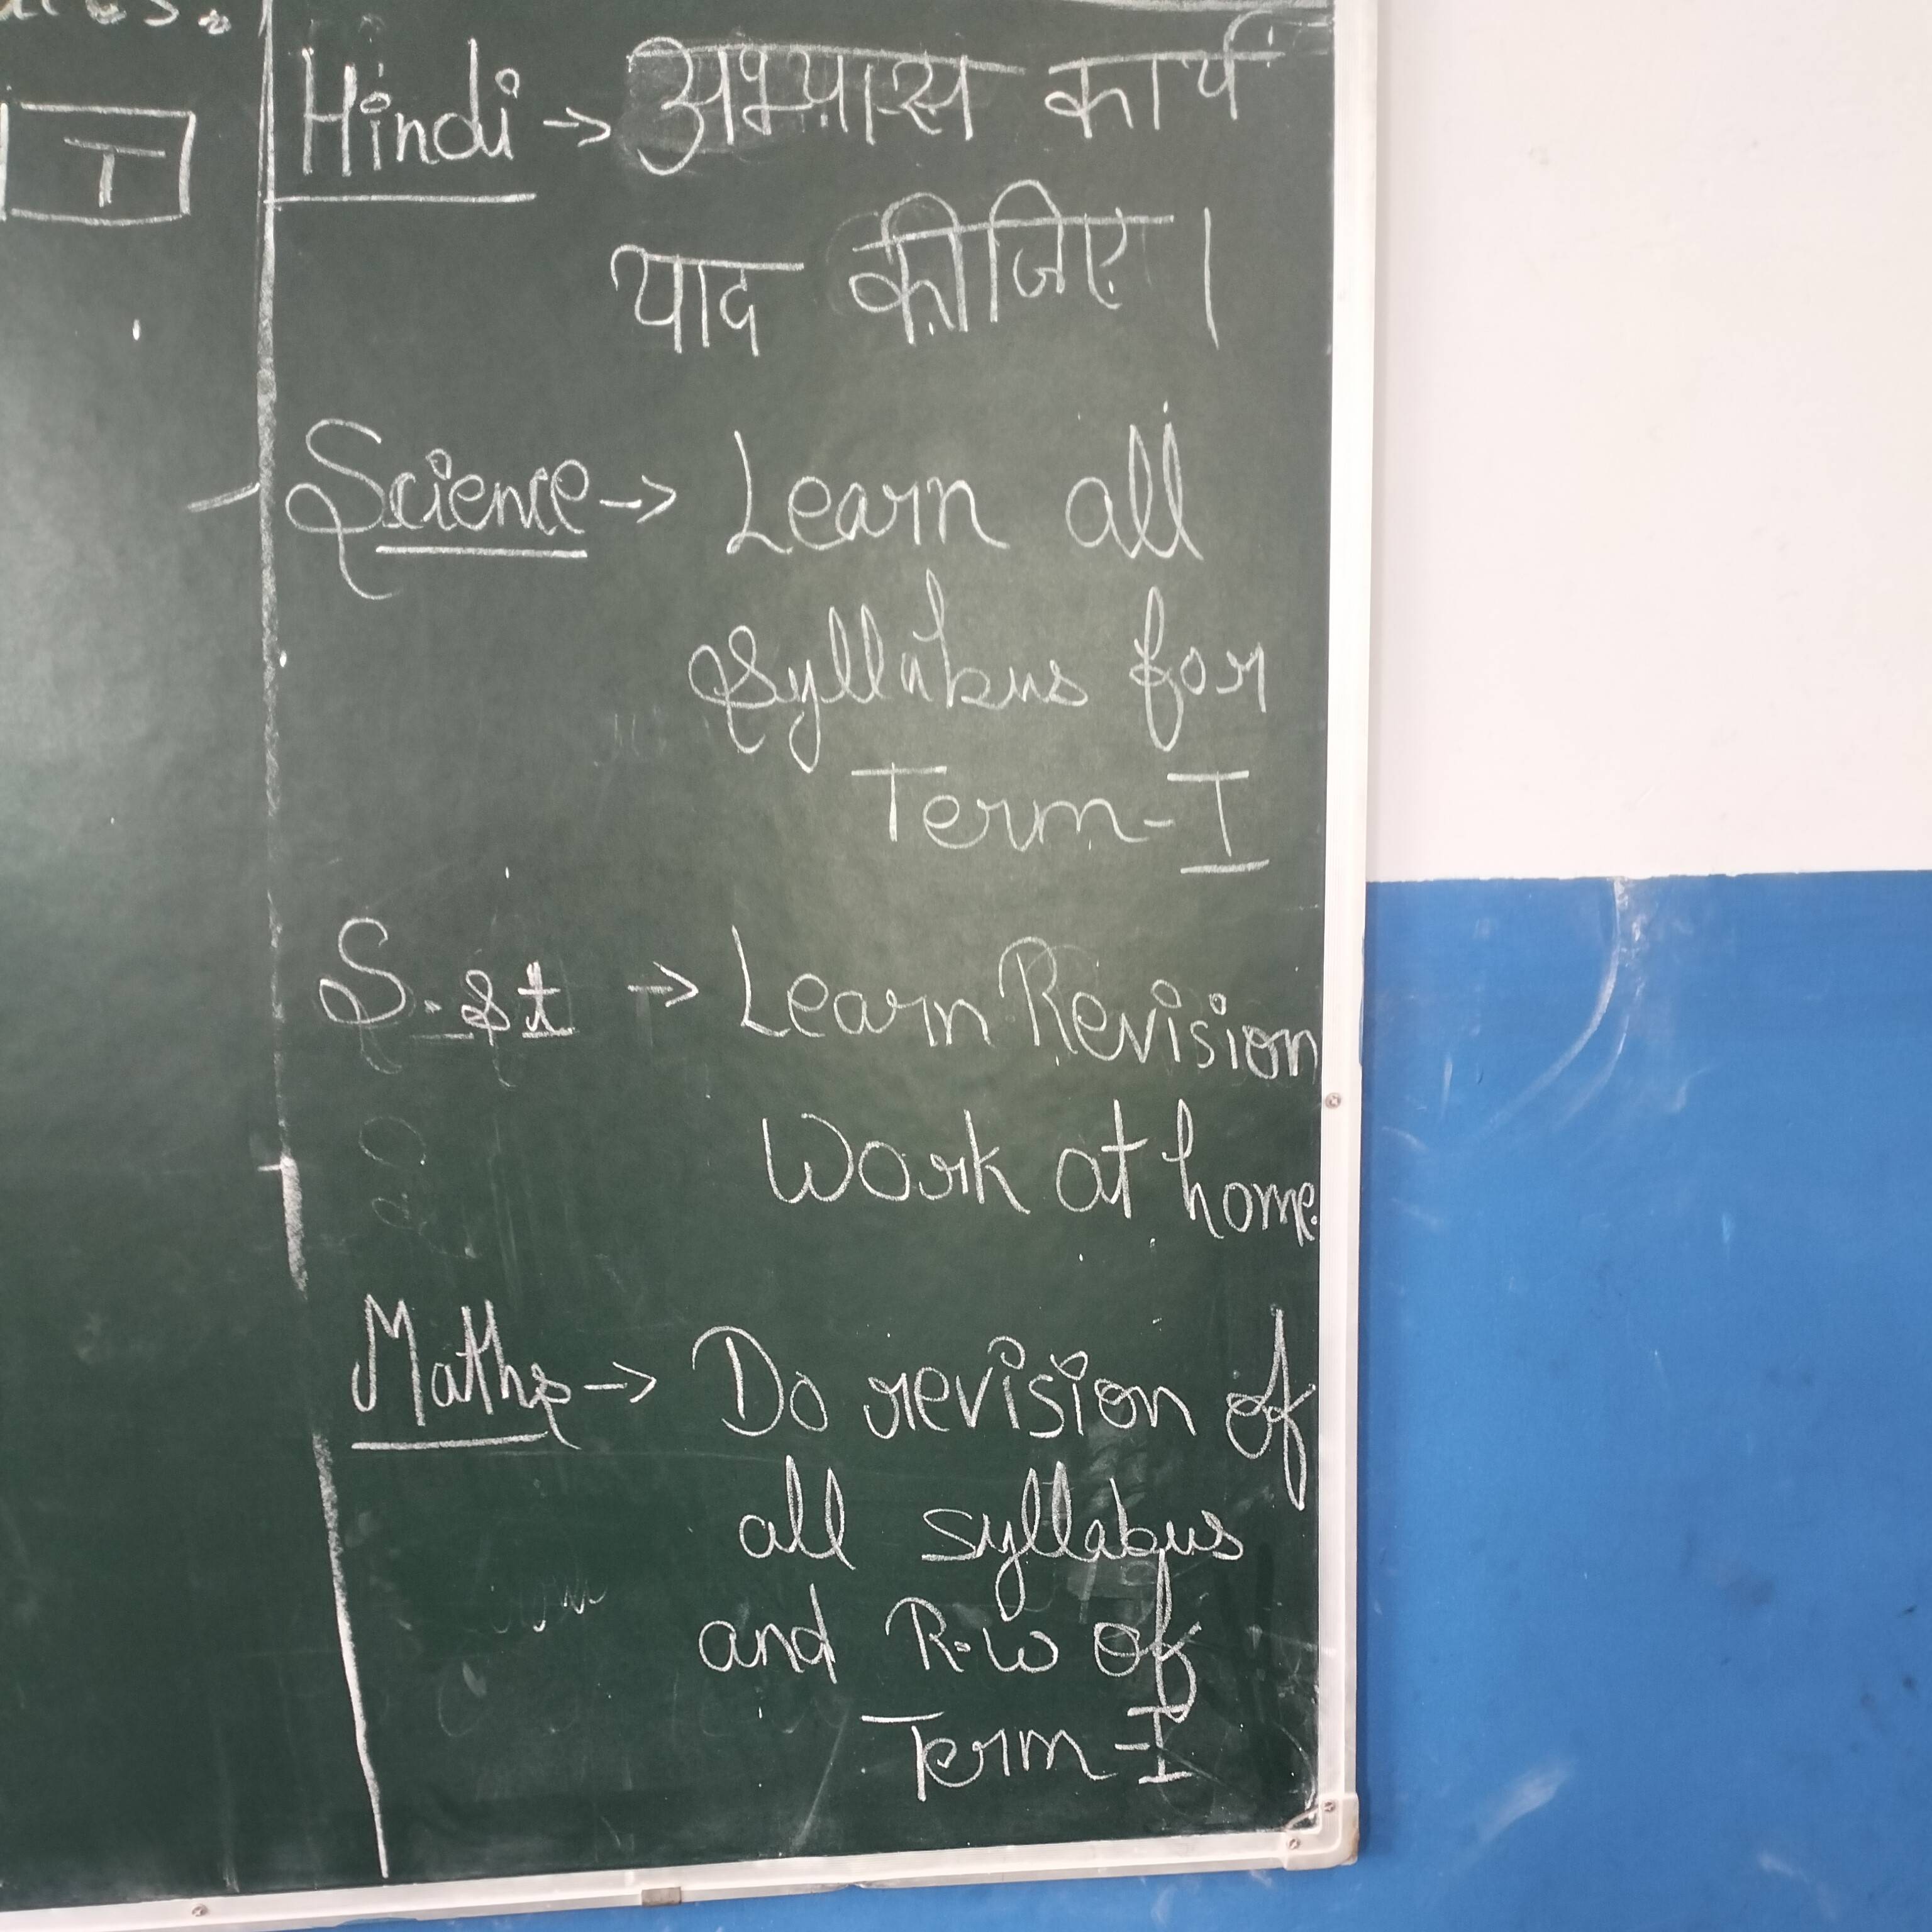 T
Hindi → अभ्यास कार्य
याद कीजिए।
Science → Learn all
syllabus for
Term-I
S.st → Learn Revision
Work at home.
Maths → Do revision of
all syllabus
and R.w of
Term-I